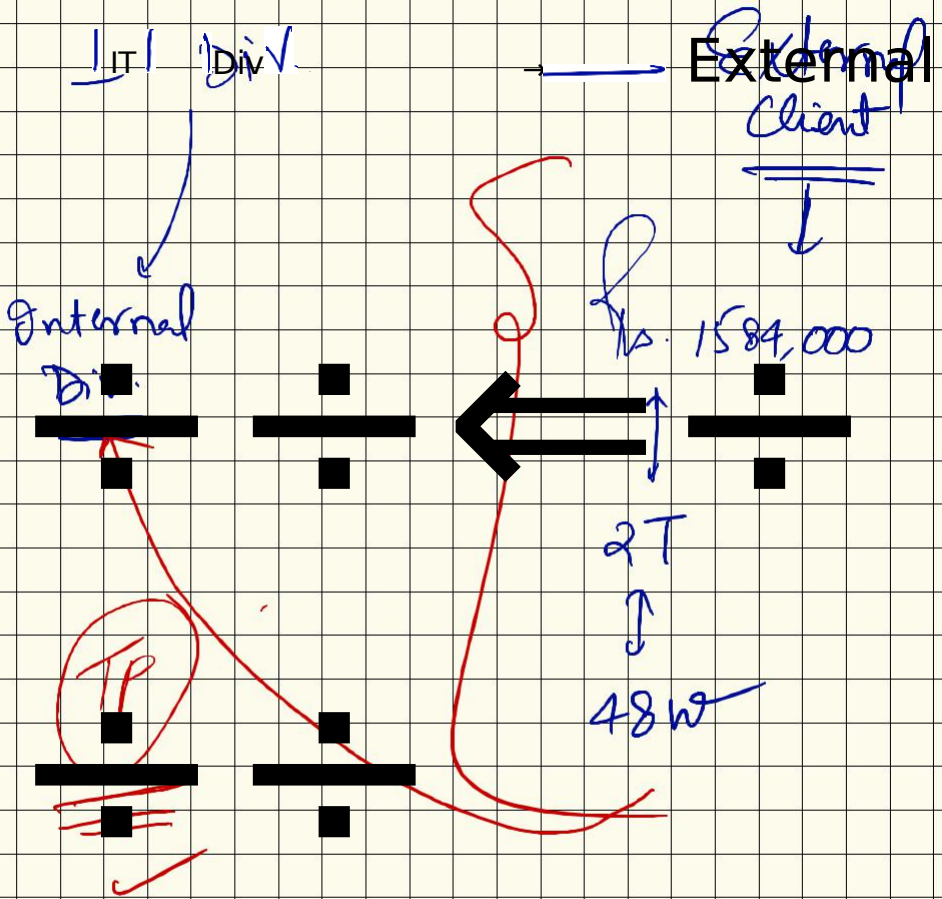 IT Div → External
Client
Internal
Div.
Rs. 1584,000
÷ ÷ ⇐ ÷
2T
48W
TP
÷ ÷